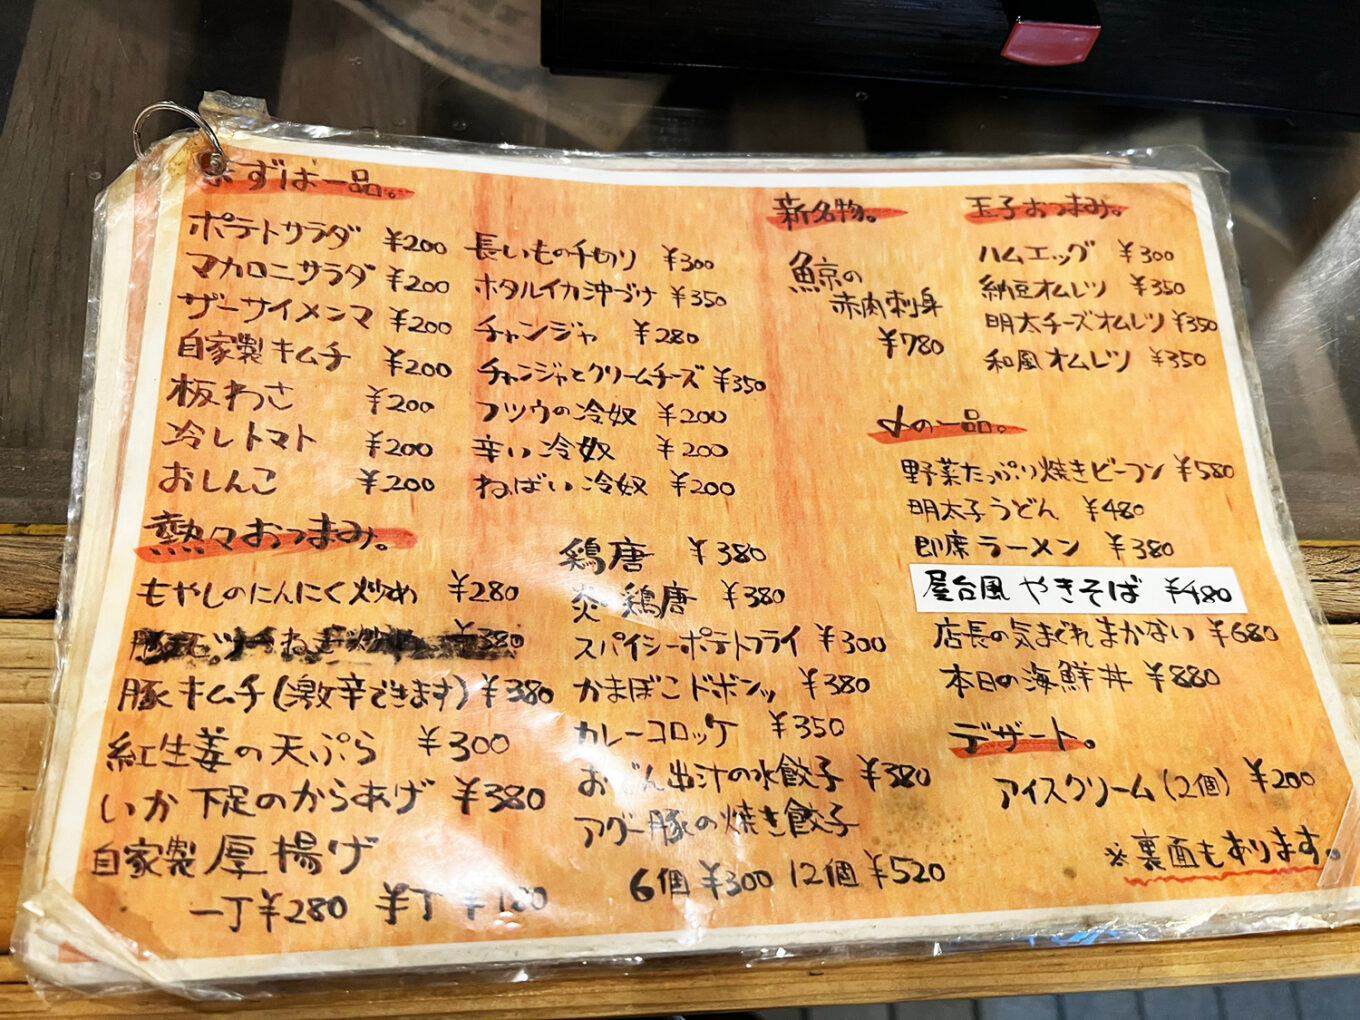 まずは一品。
ポテトサラダ ¥200
マカロニサラダ ¥200
ザーサイメンマ ¥200
自家製キムチ ¥200
板わさ ¥200
冷しトマト ¥200
おしんこ ¥200
長いもの千切り ¥300
ホタルイカ沖づけ ¥350
チャンジャ ¥280
チャンジャとクリームチーズ ¥350
フツウの冷奴 ¥200
辛い冷奴 ¥200
ねばい冷奴 ¥200
新名物。
鯨の
赤肉刺身
¥780
玉子おつまみ。
ハムエッグ ¥300
納豆オムレツ ¥350
明太チーズオムレツ ¥350
和風オムレツ ¥350
〆の一品。
野菜たっぷり焼きビーフン ¥580
明太子うどん ¥480
即席ラーメン ¥380
屋台風やきそば ¥480
店長の気まぐれまかない ¥680
本日の海鮮丼 ¥880
デザート。
アイスクリーム(2個) ¥200
※裏面もあります。
熱々おつまみ。
もやしのにんにく炒め ¥280
ねぎ炒め ¥380
豚キムチ(激辛できます) ¥380
紅生姜の天ぷら ¥300
いか下足のからあげ ¥380
自家製厚揚げ
一丁¥280 半丁¥180
鶏唐 ¥380
炎・鶏唐 ¥380
スパイシーポテトフライ ¥300
かまぼこドボンッ ¥380
カレーコロッケ ¥350
おでん出汁の水餃子 ¥380
アグー豚の焼き餃子
6個¥300 12個¥520